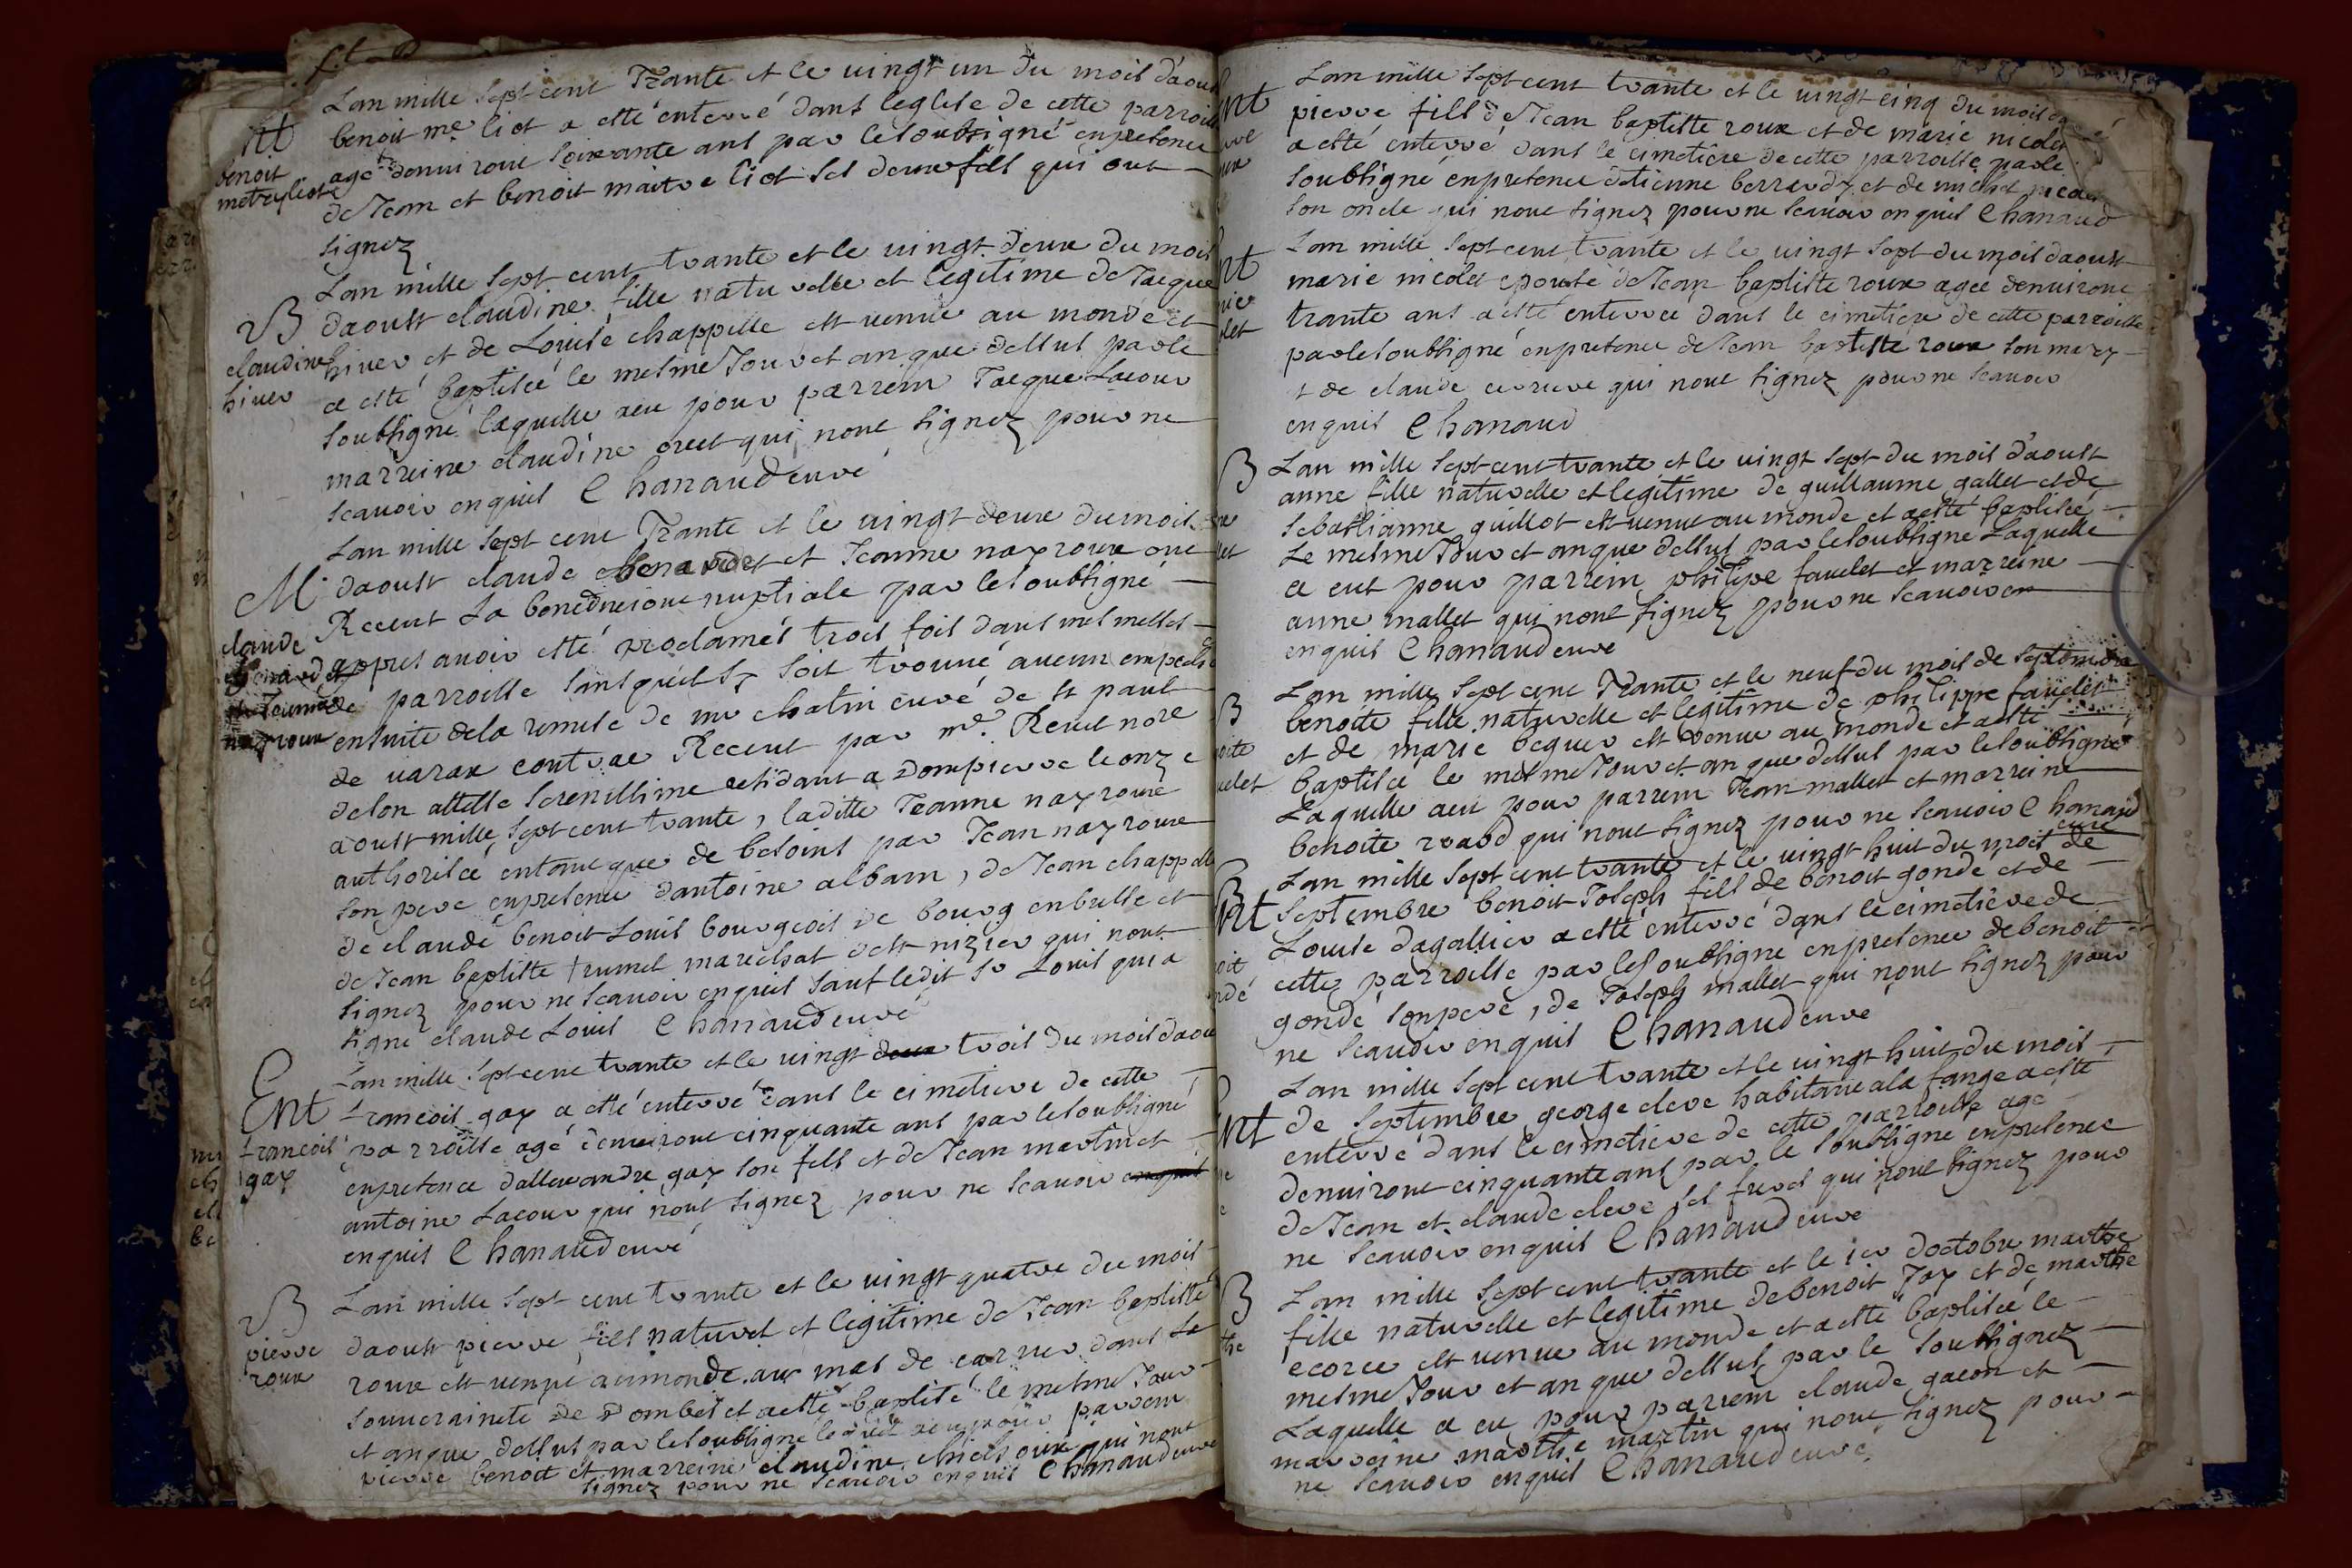 Lan mille sept cent Trante et le vingt un du mois daoust
Ent benoit me liot a esté enterré dans leglise de cette parroisse
benoit agé denviront soixante ans par le soubsigné enpresence
metre liot de Jean et benoit maitre liot ses deux fils qui ont
signez
Lan mille sept cent trante et le vingt deux du mois
B daoust claudine fille naturelle et legitime de Jacque
claudine hiver et de Louise chappelle est venue au monde et
hiver a esté baptisée le mesme Jour et an que dessus par le
soubsigné laquelle aeu pour parrein Jacque Lacour
marreine claudine qui nont signez pour ne
scavoir enquis Chanaud curé
Lan mille sept cent Trante et le vingt deux du mois
M daoust claude et Jeanne nayroux ont
Receut La benediction nuptiale par le soubsigné
claude appres avoir esté proclamés trois fois dans mes messes
de parroisse sans quil sy soit trouvé aucun
et Jeanne
nayroux ensuite dela remise de mr chatin curé de st paul
de varax contrac Receut par me Revel nore
de son altesse serenissime residant a Dompierre le onze
aoust mille sept cent trante, laditte Jeanne nayroux
authorisée entant que de besoins par Jean nayroux
son pere enpresence dantoine albam, de Jean chappelle
de claude benoit Louis bourgeois de bourg enbresse et
de Jean baptiste trumel marechat de st nizier qui nont
signez pour ne scavoir enquis sauf ledit sr Louis qui a
signé claude Louis Chanaud curé
Lan mille sept cent trante et le vingt deux trois du mois daoust
Ent francois gay a esté enterré dans le cimetiere de cette
francois parroisse agé denviront cinquante ans par le soubsigné
gay enpresence dallexandre gay son fils et de Jean martin et
antoine Lacour qui nont signez pour ne scavoir enquis
enquis Chanaud curé
Lan mille sept cent trante et le vingt quatre du mois
B daoust pierre fils naturel et legitime de Jean baptiste
pierre roux est venu aumonde au mas de carrier dans la
roux souveraineté de Dombes et aesté baptisé le mesme Jour
et an que dessus par le soubsigné lequel aeu pour parrein
pierre benoit et marreine claudine qui nont
signez pour ne scavoir enquis Chanaud curé
Lan mille sept cent trante et le vingt cinq du mois
Ent pierre fils de Jean baptiste roux et de marie nicolet
a esté enterré dans le cimetiere de cette parroisse par le
soubsigné enpresence detienne et de
son oncle qui nont signez pour ne scavoir enquis Chanaud
Lan mille sept cent trante et le vingt sept du mois daoust
Ent marie nicolet epouse de Jean baptiste roux agée denviront
trante ans a esté enterrée dans le cimetiere de cette parroisse
par le soubsigné enpresence de Jean baptiste roux son mary
et de claude qui nont signez pour ne scavoir
enquis Chanaud
B Lan mille sept cent trante et le vingt sept du mois daoust
anne fille naturelle et legitime de guillaume gallet et de
sebastianne guillot est venue au monde et aesté baptisée
Le mesme Jour et an que dessus par le soubsigné Laquelle
a eut pour parrein philipe favelet et marreine
anne mallet qui nont signez pour ne scavoir en
enquis Chanaud curé
Lan mille sept cent Trante et le neuf du mois de septembre
B benoite fille naturelle et legitime de philippe favelet
et de marie bequer est venue au monde et aesté
baptisée le mesme Jour et an que dessus par le soubsigné
Laquelle aeu pour parrein Jean mallet et marreine
benoite roux qui nont signez pour ne scavoir Chanaud
curé
Lan mille sept cent trante et le vingt huit du mois de
Ent septembre benoit Joseph fils de benoit gonde et de
Louise dagallier a esté enterré dans le cimetiere de
cette parroisse par le soubsigné enpresence de benoit
gondé son pere, de Joseph mallet qui nont signez pour
ne scavoir enquis Chanaud curé
Lan mille sept cent trante et le vingt huit du mois
Ent de septembre george clere habitant ala fange a esté
enterré dans le cimetiere de cette parroisse agé
denviront cinquante ans par le soubsigné enpresence
de Jean et claude clere ses freres qui nont signez pour
ne scavoir enquis Chanaud curé
B Lan mille sept cent trante et le 1er doctobre marthe
fille naturelle et legitime de benoit Jay et de marthe
ecorce est venue au monde et a esté baptisée le
mesme Jour et an que dessus par le soubsignez
Laquelle a eu pour parrein claude gacon et
marreine marthe martin qui nont signez pour
ne scavoir enquis Chanaud curé